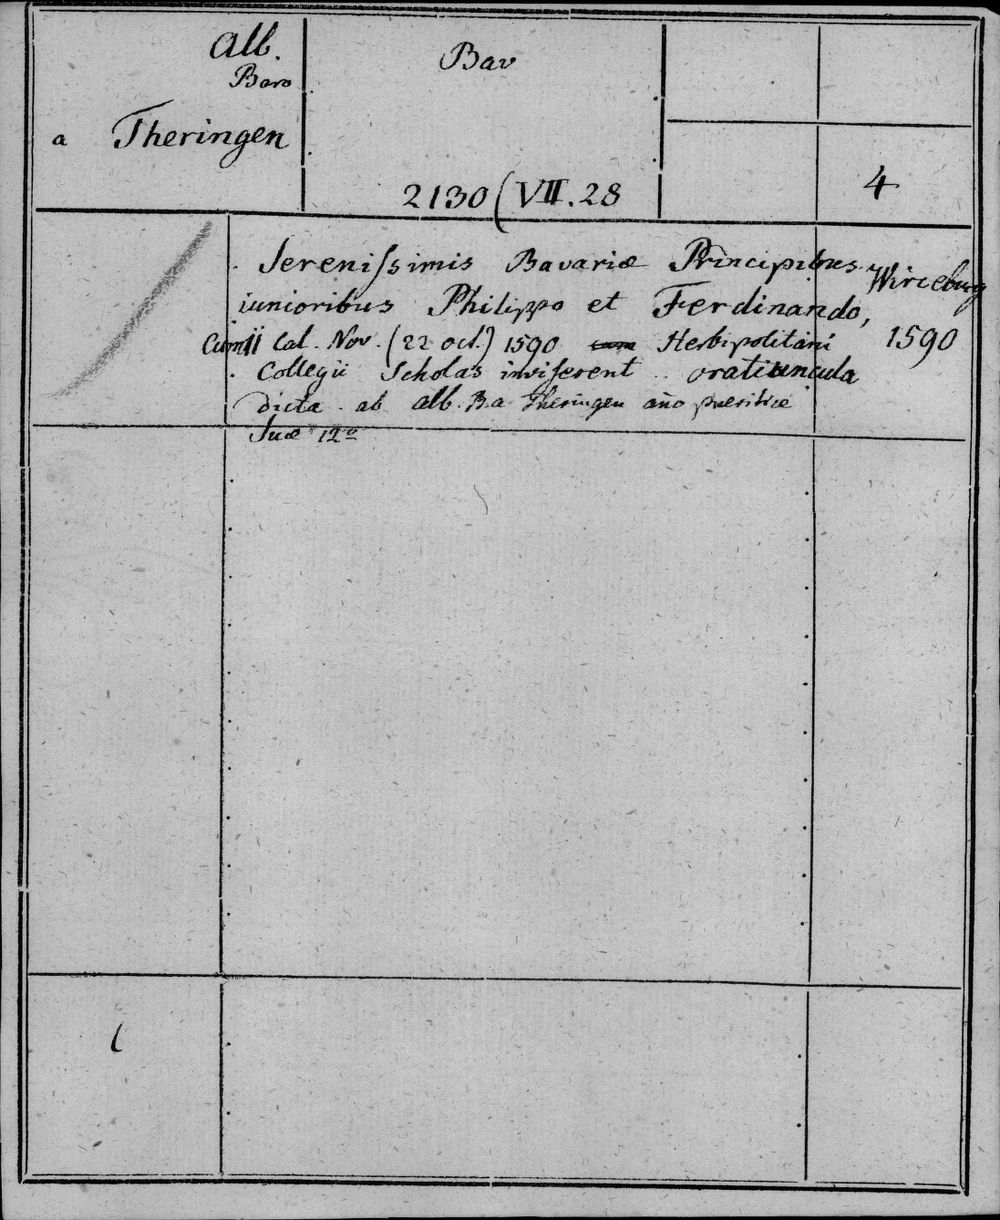 Alb.
Baro
a Theringen
Bav
2130 (VII. 28
4
Serenissimis Bavariæ Principibus
iunioribus Philippo et Ferdinando,
Cum II Cal. Nov. (22 oct.) 1590 Herbipolitani
Collegii Scholas inviserent .. oratiuncula
dicta ab Alb. B. a Theringen año pueritiæ
Suæ 12º
Wirceburg
1590